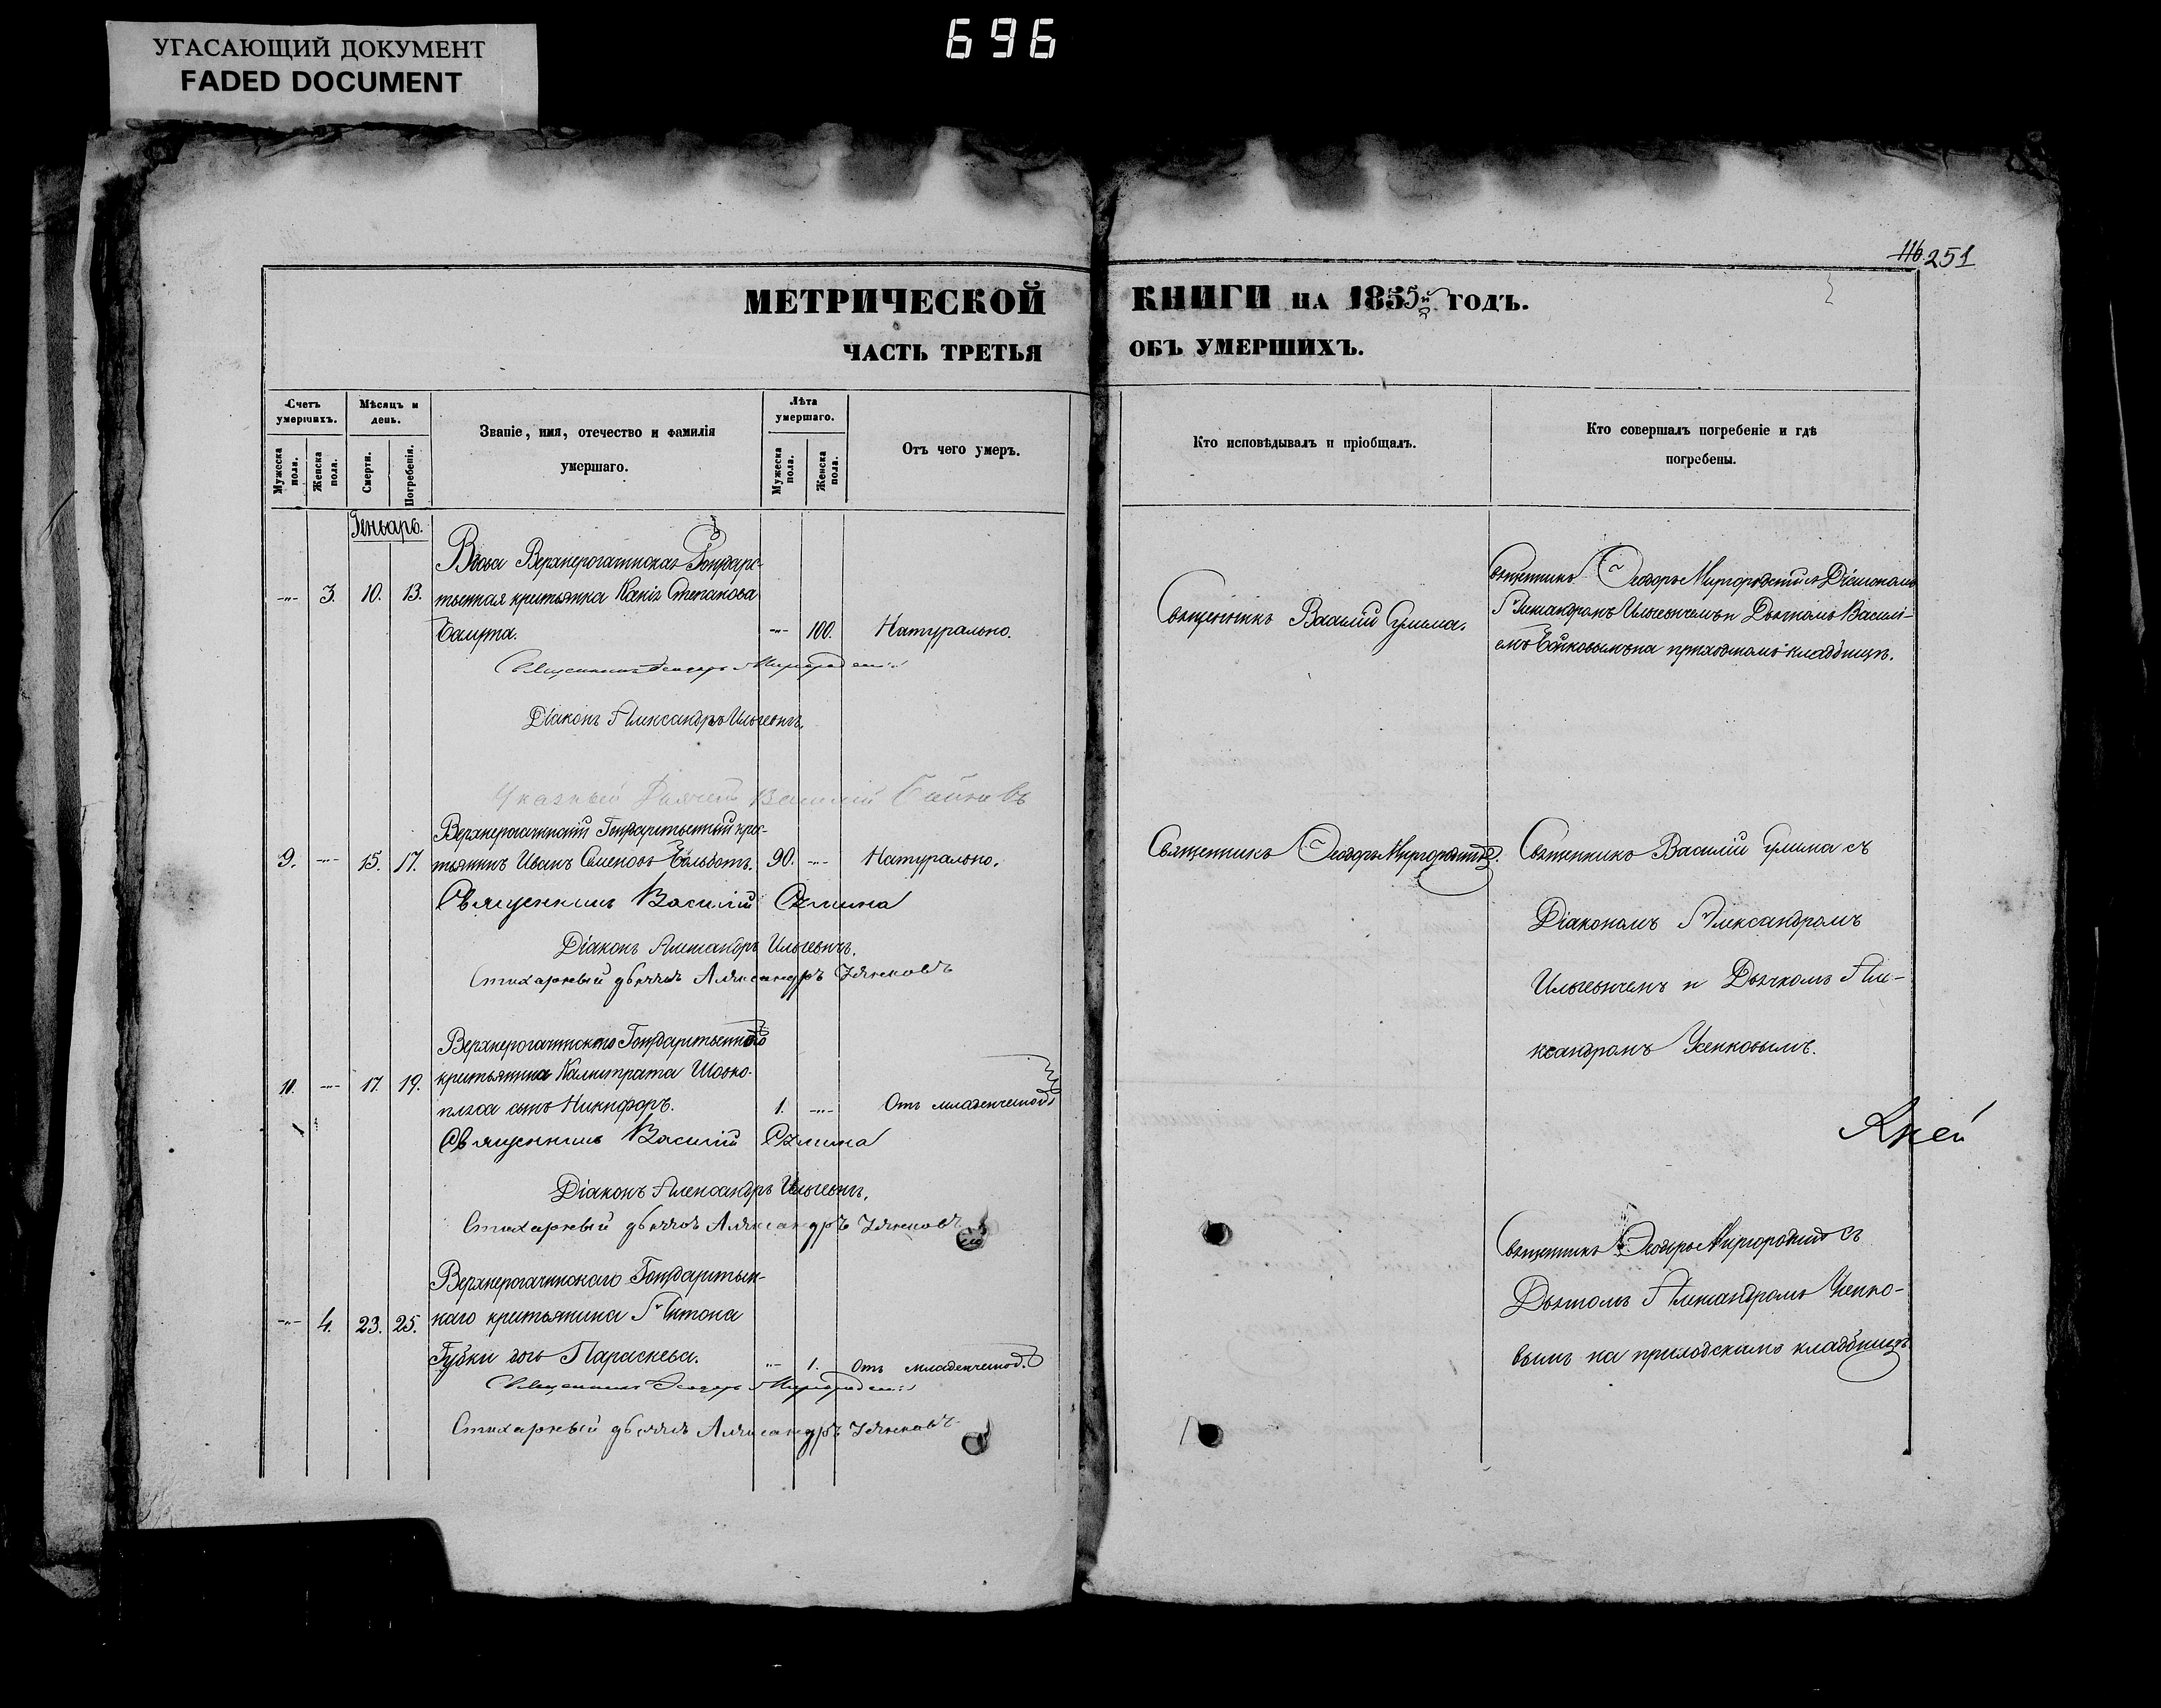 УГАСАЮЩИЙ ДОКУМЕНТ
FADED DOCUMENT
696
116 251
МЕТРИЧЕСКОЙ КНИГИ НА 1855 ГОДЪ.
ЧАСТЬ ТРЕТЬЯ ОБЪ УМЕРШИХЪ.
Счетъ умершихъ.
Мужеска пола.
Женска пола.
Мѣсяцъ и день.
Смерти.
Погребенія.
Званіе, имя, отечество и фамилія
умершаго.
Лѣта умершаго.
Мужеска пола.
Женска пола.
Отъ чего умеръ.
Кто исповѣдывалъ и пріобщалъ.
Кто совершалъ погребеніе и гдѣ
погребены.
Геньварь.
Вдова Верхнерогачинская Государс-
-"- 3. 10. 13. твенная крестьянка Степанова
-"- 100. Натурально.
Священникъ Ѳеодоръ Миргородскій
Діаконъ Александръ Ильяевичъ.
Указный Дьячекъ Василій Байковъ
Священникъ Василій Сулима.
Священникъ Ѳеодоръ Миргородскій съ Діакономъ
Александромъ Ильяевичемъ и Дьячкомъ Василі-
емъ Байковымъ на приходскомъ кладбищѣ.
Верхнерогачинскій Государственный крес-
9. -"- 15. 17. тьянинъ Иванъ Семеновъ 90. -"- Натурально.
Священникъ Василій Сулима
Діаконъ Александръ Ильяевичъ.
Стихарный дьячокъ Александръ Усенковъ
Священникъ Ѳеодоръ Миргородскій.
Священникъ Василій Сулима съ
Діакономъ Александромъ
Ильяевичемъ и Дьячкомъ Але-
ксандромъ Усенковымъ.
Верхнерогачинскаго Государственнаго
10. -"- 17. 19. крестьянина Калистрата Шовко-
пляса сынъ Никифоръ. 1. -"- Отъ младенческой
Священникъ Василій Сулима
Діаконъ Александръ Ильяевичъ.
Стихарный дьячокъ Александръ Усенковъ
Верхнерогачинскаго Государствен-
-"- 4. 23. 25. наго крестьянина Антона
Губки дочь Параскева. -"- 1. Отъ младенческой.
Священникъ Ѳеодоръ Миргородскій
Стихарный дьячокъ Александръ Усенковъ
Священникъ Ѳеодоръ Миргородскій съ
Дьячкомъ Александромъ Усенко-
вымъ на приходскомъ кладбищѣ